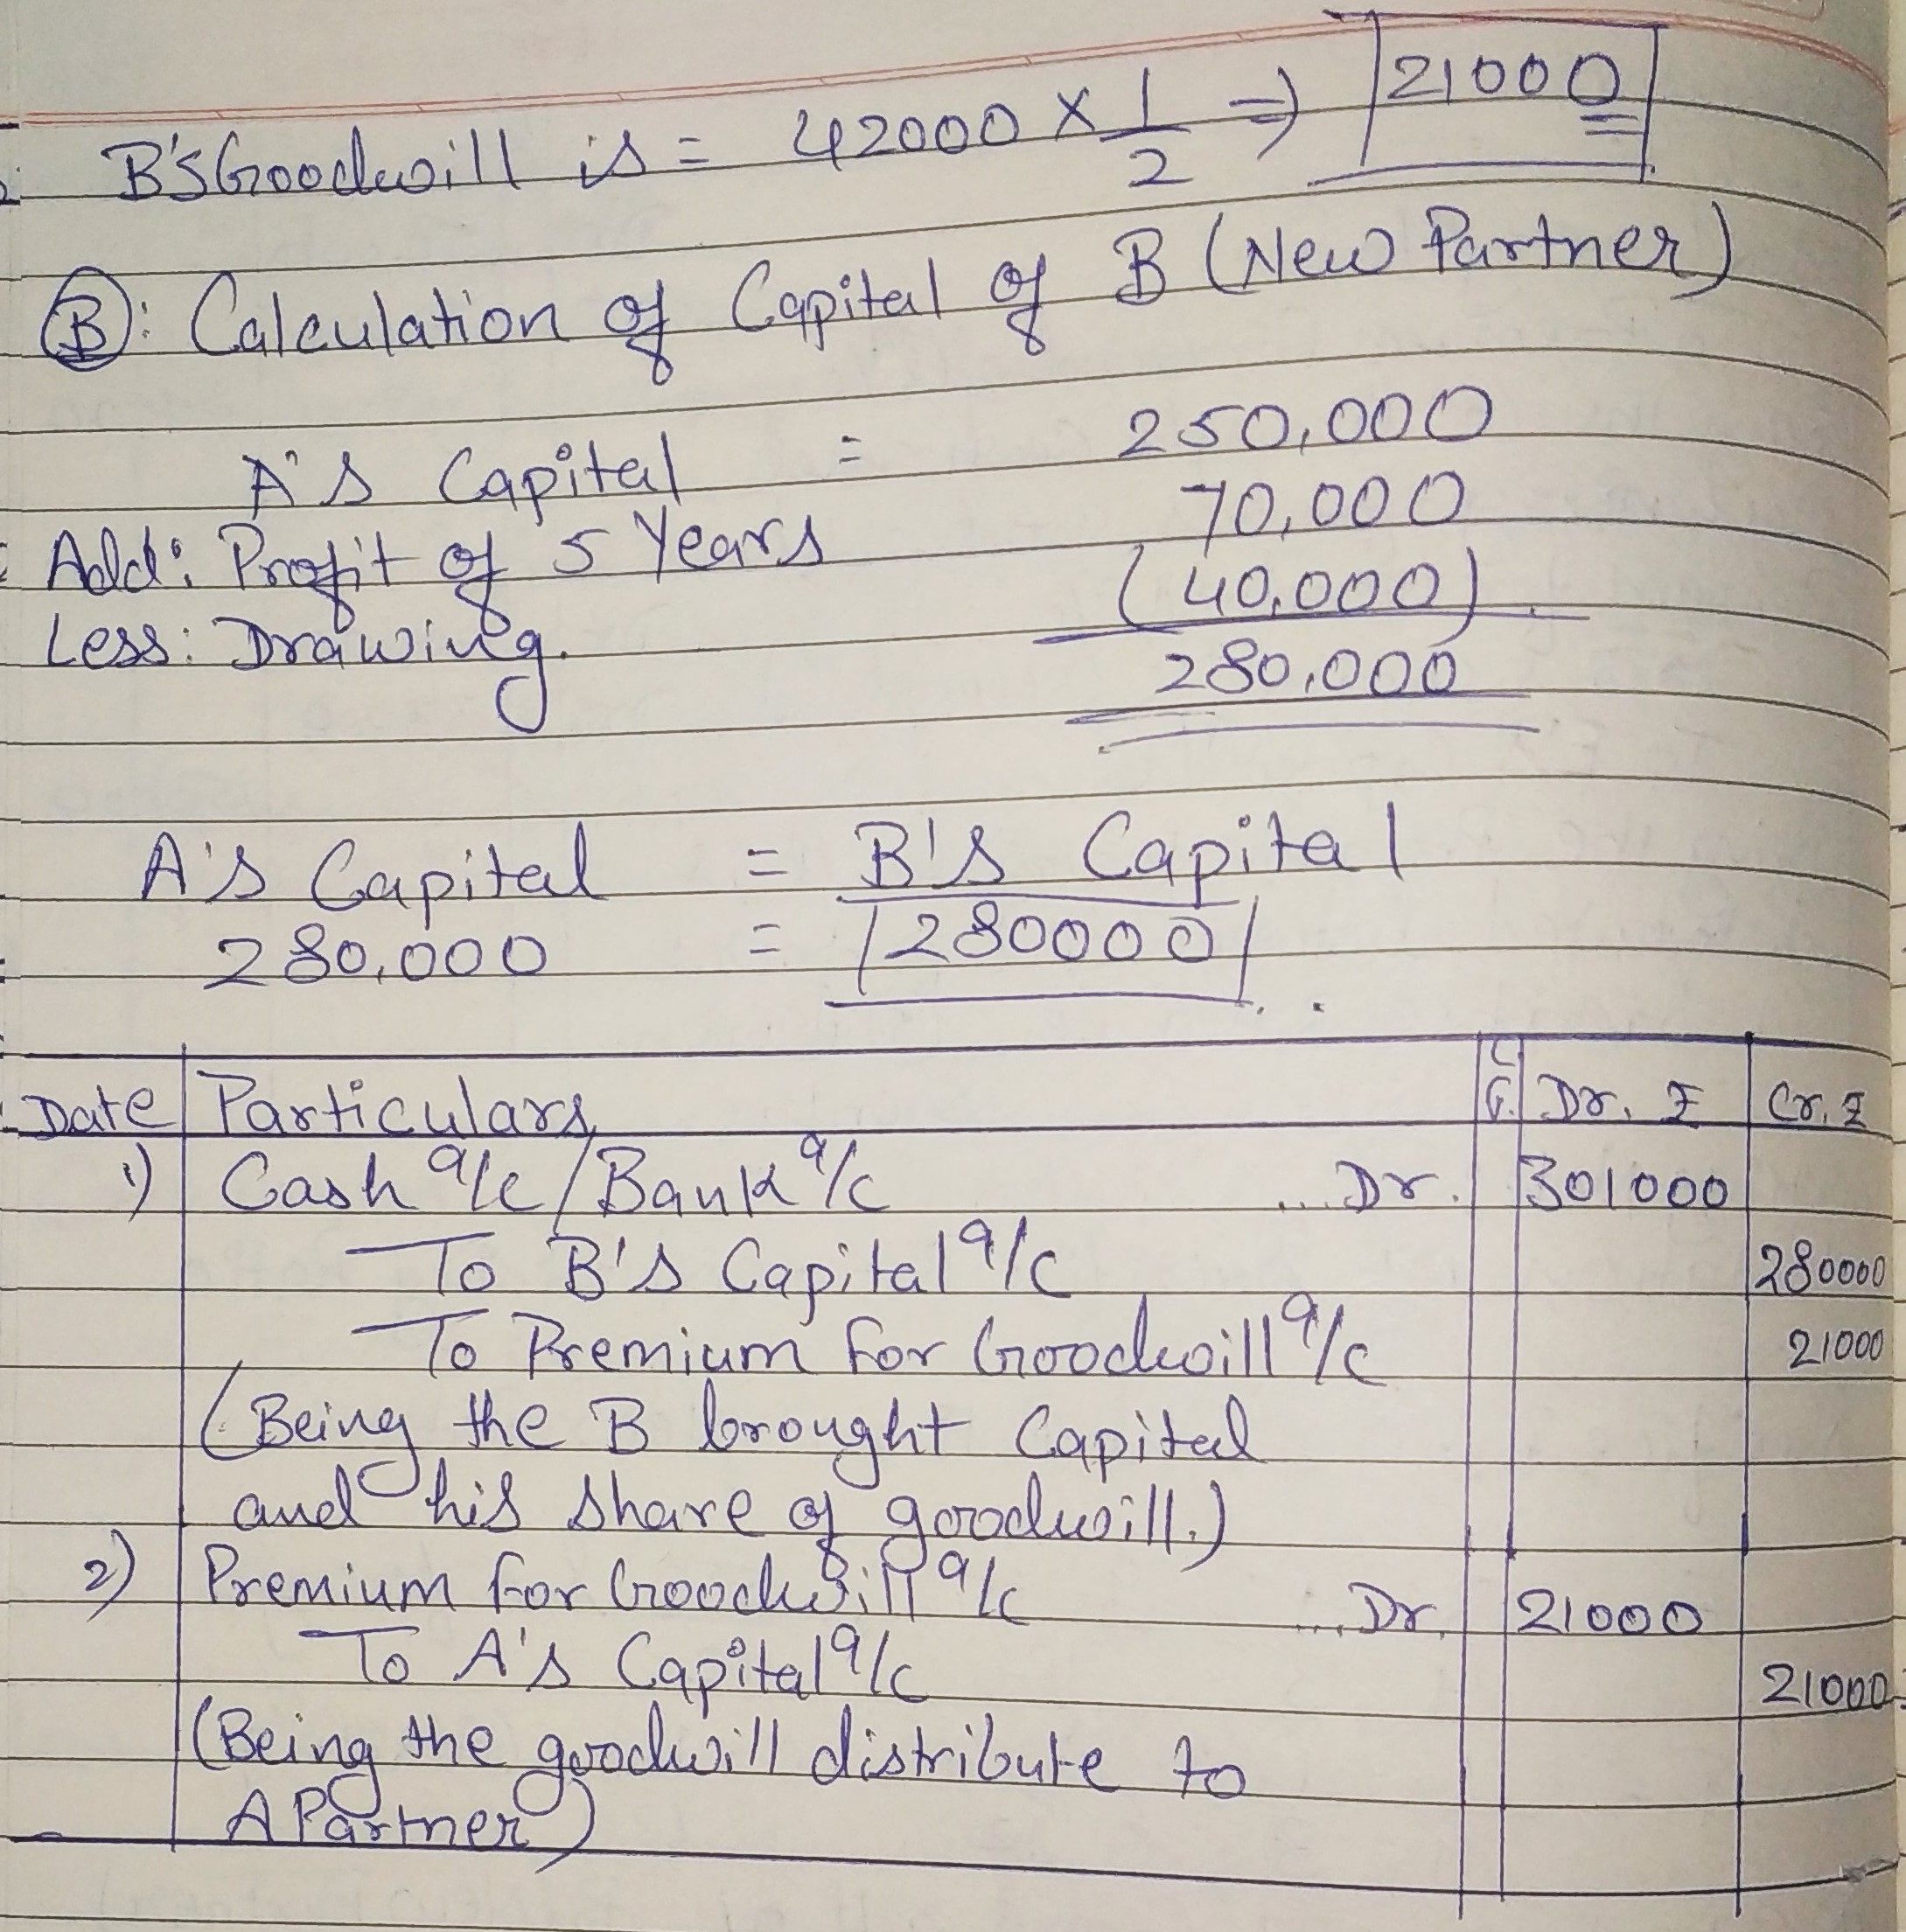 B's Goodwill is = 42000 × 1/2 ⇒ 21000
(B): Calculation of Capital of B (New Partner)
A's Capital = 250,000
Add: Profit of 5 Years 70,000
Less: Drawing. (40,000)
280,000
A's Capital = B's Capital
280,000 = 280000
Date Particulars L.F. Dr. ₹ Cr. ₹
1) Cash a/c / Bank a/c ... Dr. 301000
To B's Capital a/c 280000
To Premium for Goodwill a/c 21000
(Being the B brought Capital
and his share of goodwill.)
2) Premium for Goodwill a/c ... Dr. 21000
To A's Capital a/c 21000
(Being the goodwill distribute to
A Partner)